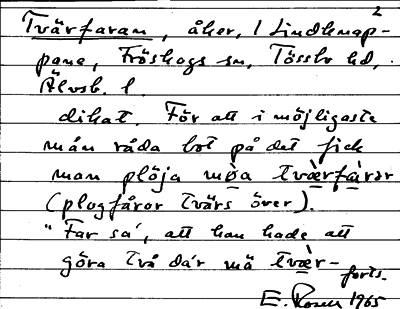 2
Tvärfaran, åker, i Lindknap-
pane, Fröskogs sn, Tössbo hd,
Älvsb. l.
dikat. För att i möjligaste
mån råda bot på det fick
man plöja mga tvärfårar
(plogfåror tvärs över).
"Far sa', att han hade att
göra två där mä tvær-
forts.
E. Rosen 1965